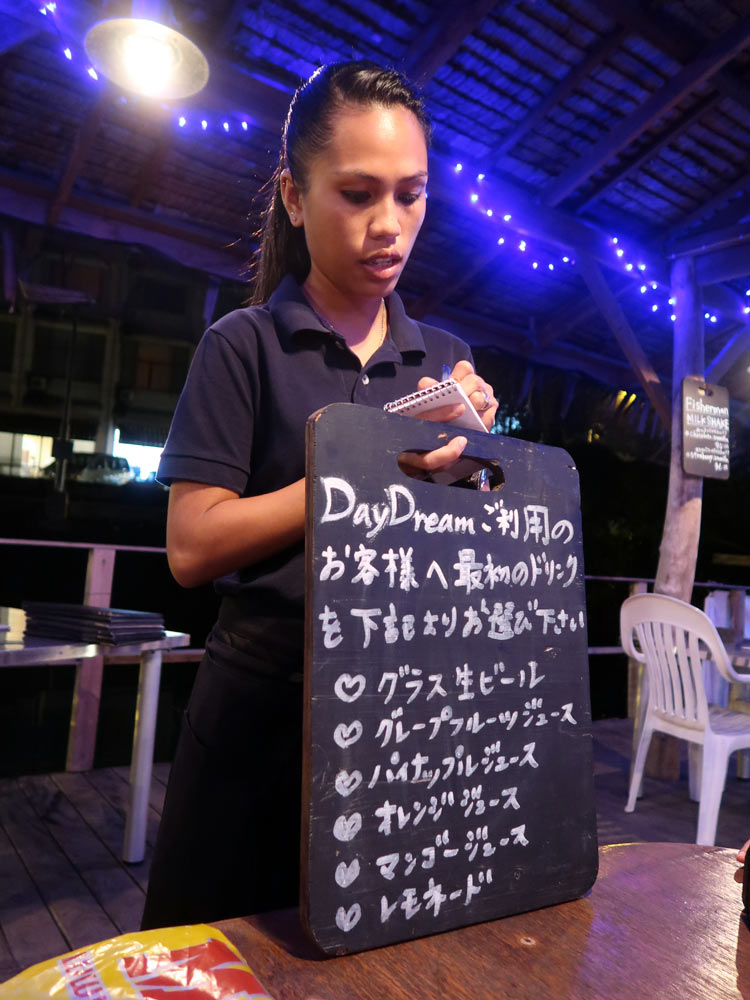 DayDreamご利用の
お客様へ最初のドリンク
を下記よりお選び下さい
♡グラス生ビール
♡グレープフルーツジュース
♡パイナップルジュース
♡オレンジジュース
♡マンゴージュース
♡レモネード
Fisherman
MILKSHAKE